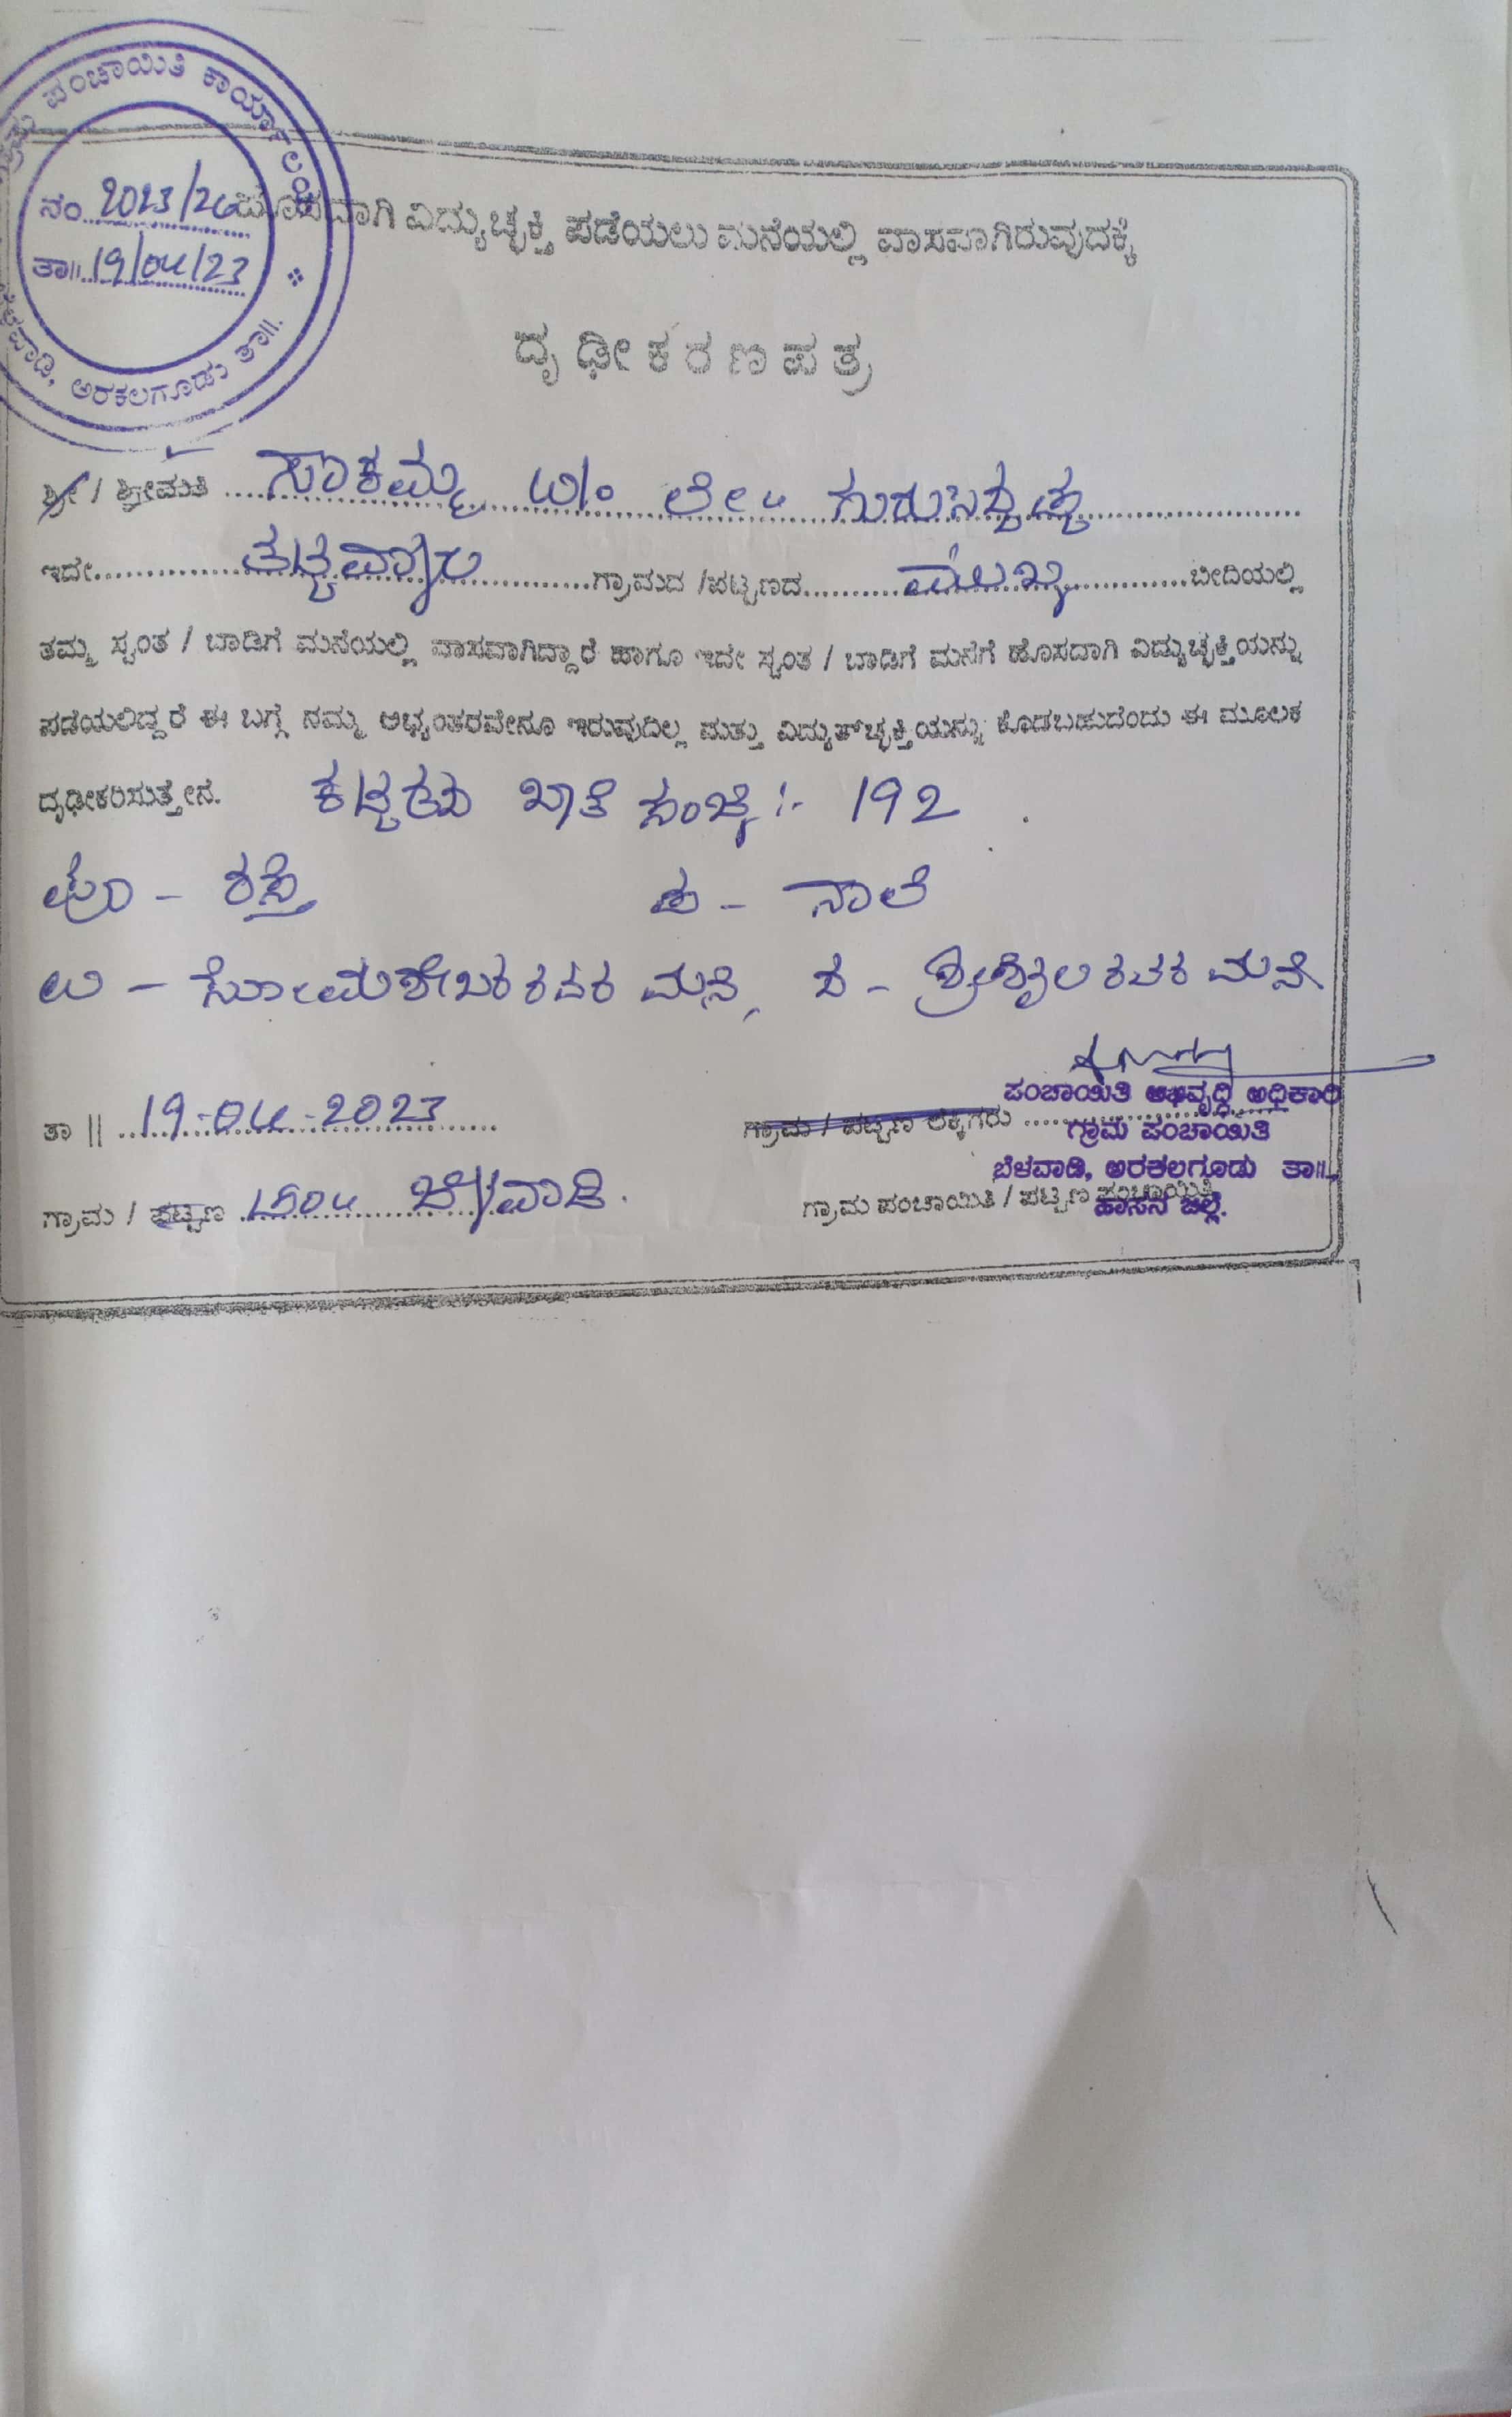 ಪಂಚಾಯಿತಿ ಕಾರ್ಯಾಲಯ
ನಂ. 2023/24
ತಾ|| 19/04/23
ಬೆಳವಾಡಿ, ಅರಕಲಗೂಡು ತಾ||.
ಹೊಸದಾಗಿ ವಿದ್ಯುಚ್ಛಕ್ತಿ ಪಡೆಯಲು ಮನೆಯಲ್ಲಿ ವಾಸವಾಗಿರುವುದಕ್ಕೆ
ದೃಢೀಕರಣಪತ್ರ
ಶ್ರೀ / ಶ್ರೀಮತಿ ಸಾಕಮ್ಮ W/o ಲೇ||
ಇದೇ ಗ್ರಾಮದ / ಪಟ್ಟಣದ ಬೀದಿಯಲ್ಲಿ
ತಮ್ಮ ಸ್ವಂತ / ಬಾಡಿಗೆ ಮನೆಯಲ್ಲಿ ವಾಸವಾಗಿದ್ದಾರೆ ಹಾಗೂ ಇದೇ ಸ್ವಂತ / ಬಾಡಿಗೆ ಮನೆಗೆ ಹೊಸದಾಗಿ ವಿದ್ಯುಚ್ಛಕ್ತಿಯನ್ನು
ಪಡೆಯಲಿದ್ದರೆ ಈ ಬಗ್ಗೆ ನಮ್ಮ ಅಭ್ಯಂತರವೇನೂ ಇರುವುದಿಲ್ಲ ಮತ್ತು ವಿದ್ಯುತ್‌ಚ್ಛಕ್ತಿಯನ್ನು ಕೊಡಬಹುದೆಂದು ಈ ಮೂಲಕ
ದೃಢೀಕರಿಸುತ್ತೇನೆ. ಕಟ್ಟಡದ ಖಾತೆ ಸಂಖ್ಯೆ :- 192
ಪೂ - ರಸ್ತೆ ಪ - ನಾಲೆ
ಉ - ಸೋಮಶೇಖರರವರ ಮನೆ, ದ - ಶ್ರೀಶೈಲರವರ ಮನೆ
ತಾ || 19-04-2023
ಗ್ರಾಮ / ಪಟ್ಟಣ ಲೆಕ್ಕಿಗರು
ಪಂಚಾಯಿತಿ ಅಭಿವೃದ್ಧಿ ಅಧಿಕಾರಿ
ಗ್ರಾಮ ಪಂಚಾಯಿತಿ
ಬೆಳವಾಡಿ, ಅರಕಲಗೂಡು ತಾ||,
ಹಾಸನ ಜಿಲ್ಲೆ.
ಗ್ರಾಮ / ಪಟ್ಟಣ ಬೆಳವಾಡಿ.
ಗ್ರಾಮ ಪಂಚಾಯಿತಿ / ಪಟ್ಟಣ ಪಂಚಾಯಿತಿ